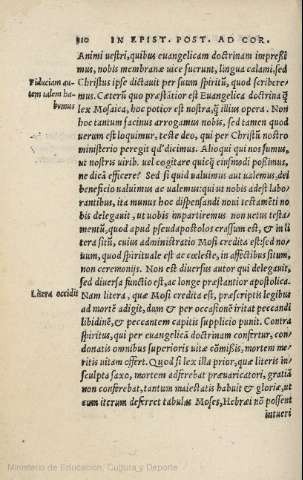 810 IN EPIST. POST. AD COR.
Animi uestri, quibus euangelicam doctrinam impreßi
mus, nobis membranæ uice fuerunt, lingua calami, sed
Fiduciam au- Christus ipse dictauit per suum spiritũ, quod scribere
tem talem ha- mus. Cæterũ quo præstãtior est Euangelica doctrina ꝗ̃
bemus lex Mosaica, hoc potior est nostra, ꝗ̃ illius opera. Non
hoc tantum facinus arrogamus nobis, sed tamen quod
uerum est loquimur, teste deo, qui per Christũ nostro
ministerio peregit qd' dicimus. Alio qui qui nos sumus,
ut nostris uirib. uel cogitare quicꝗ̃ eiusmodi poßimus,
ne dicã efficere? Sed si quid ualuimus aut ualemus, dei
beneficio ualuimus ac ualemus: qui ut nobis adest labo
rantibus, ita munus hoc dispensandi noui testamẽti no
bis delegauit, ut nobis impartiremus non uetus testa-
mentũ, quod apud pseudapostolos crassum est, & in li
tera sitũ, cuius administratio Mosi credita est: sed no
uum, quod spirituale est ac cœleste, in affectibus situm,
non ceremonijs. Non est diuersus autor qui delegauit,
sed diuersa functio est, ac longe præstantior apostolica.
Litera occidit Nam litera, quæ Mosi credita est, præscriptis legibus
ad mortẽ adigit, dum & per occasionẽ irritat peccandi
libidinẽ, & peccantem capitis supplicio punit. Contra
spiritus, qui per euangelicã doctrinam confertur, con-
donatis omnibus superioris uitæ cõmißis, mortem me-
ritis uitam offert. Quod si lex illa prior, quæ literis in
sculpta saxo, mortem adferebat præuaricatori, gratiã
non conferebat, tantum maiestatis habuit & gloriæ, ut
cum iterum deferret tabulas Moses, Hebræi nõ possent
intueri
Ministerio de Educación, Cultura y Deporte